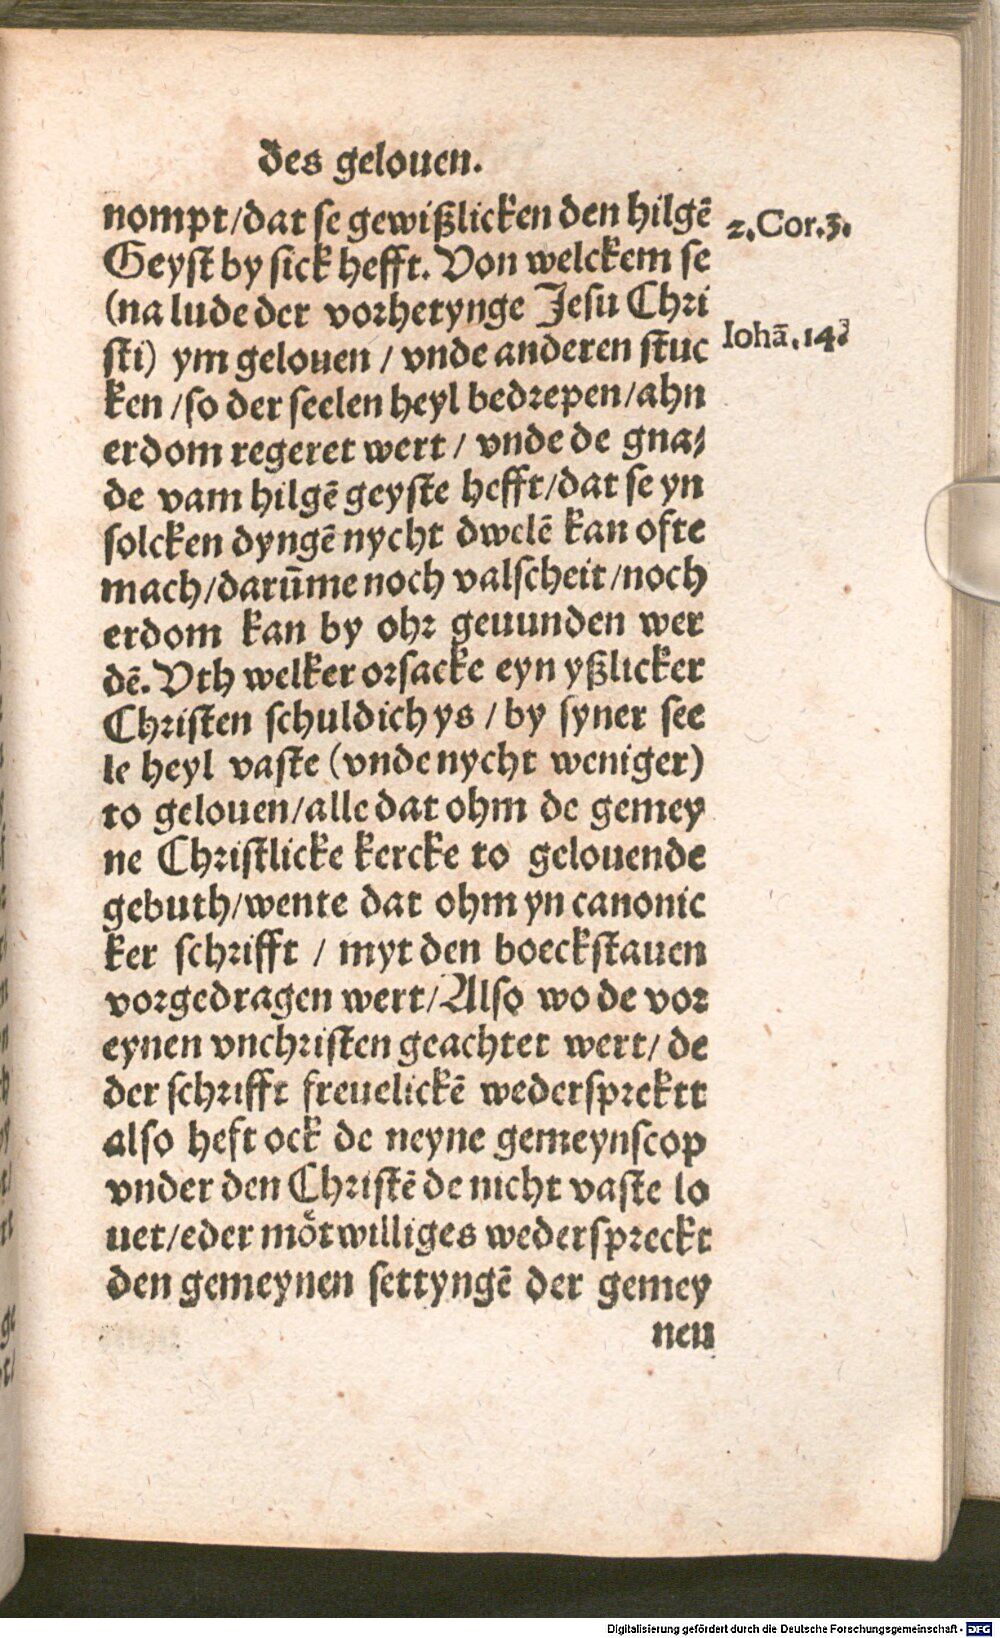 des gelouen.
nompt/dat se gewißlicken den hilgē
Geyst by sick hefft. Von welckem se
(na lude der vorhetynge Jesu Chri
sti) ym gelouen / vnde anderen stuc
ken /so der seelen heyl bedrepen/ahn
erdom regeret wert / vnde de gna⸗
de vam hilgē geyste hefft/dat se yn
solcken dyngē nycht dwelē kan ofte
mach/darūme noch valscheit/noch
erdom kan by ohr geuunden wer
dē. Vth welker orsacke eyn yßlicker
Christen schuldich ys / by syner see
le heyl vaste (vnde nycht weniger)
to gelouen/alle dat ohm de gemey
ne Christlicke kercke to gelouende
gebuth/wente dat ohm yn canonic
ker schrifft / myt den boeckstauen
vorgedragen wert/Also wo de vor
eynen vnchristen geachtet wert/ de
der schrifft freuelickē wedersprektt
also heft ock de neyne gemeynscop
vnder den Christē de nicht vaste lo
uet/eder moͤtwilliges wedersprecкt
den gemeynen settyngē der gemey
nen
2.Cor.3.
Iohā.14.
Digitalisierung gefördert durch die Deutsche Forschungsgemeinschaft - DFG